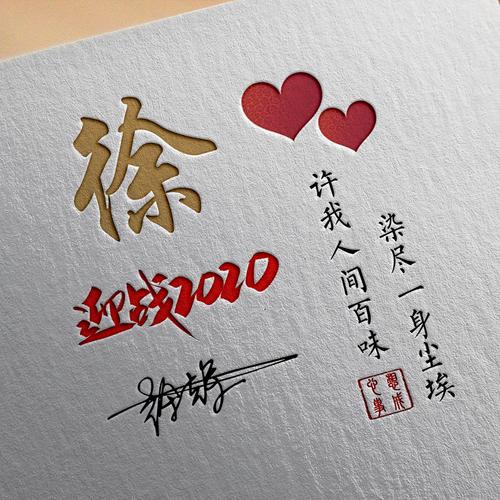 徐
迎战2020
许我人间百味
染尽一身尘埃
心想事成